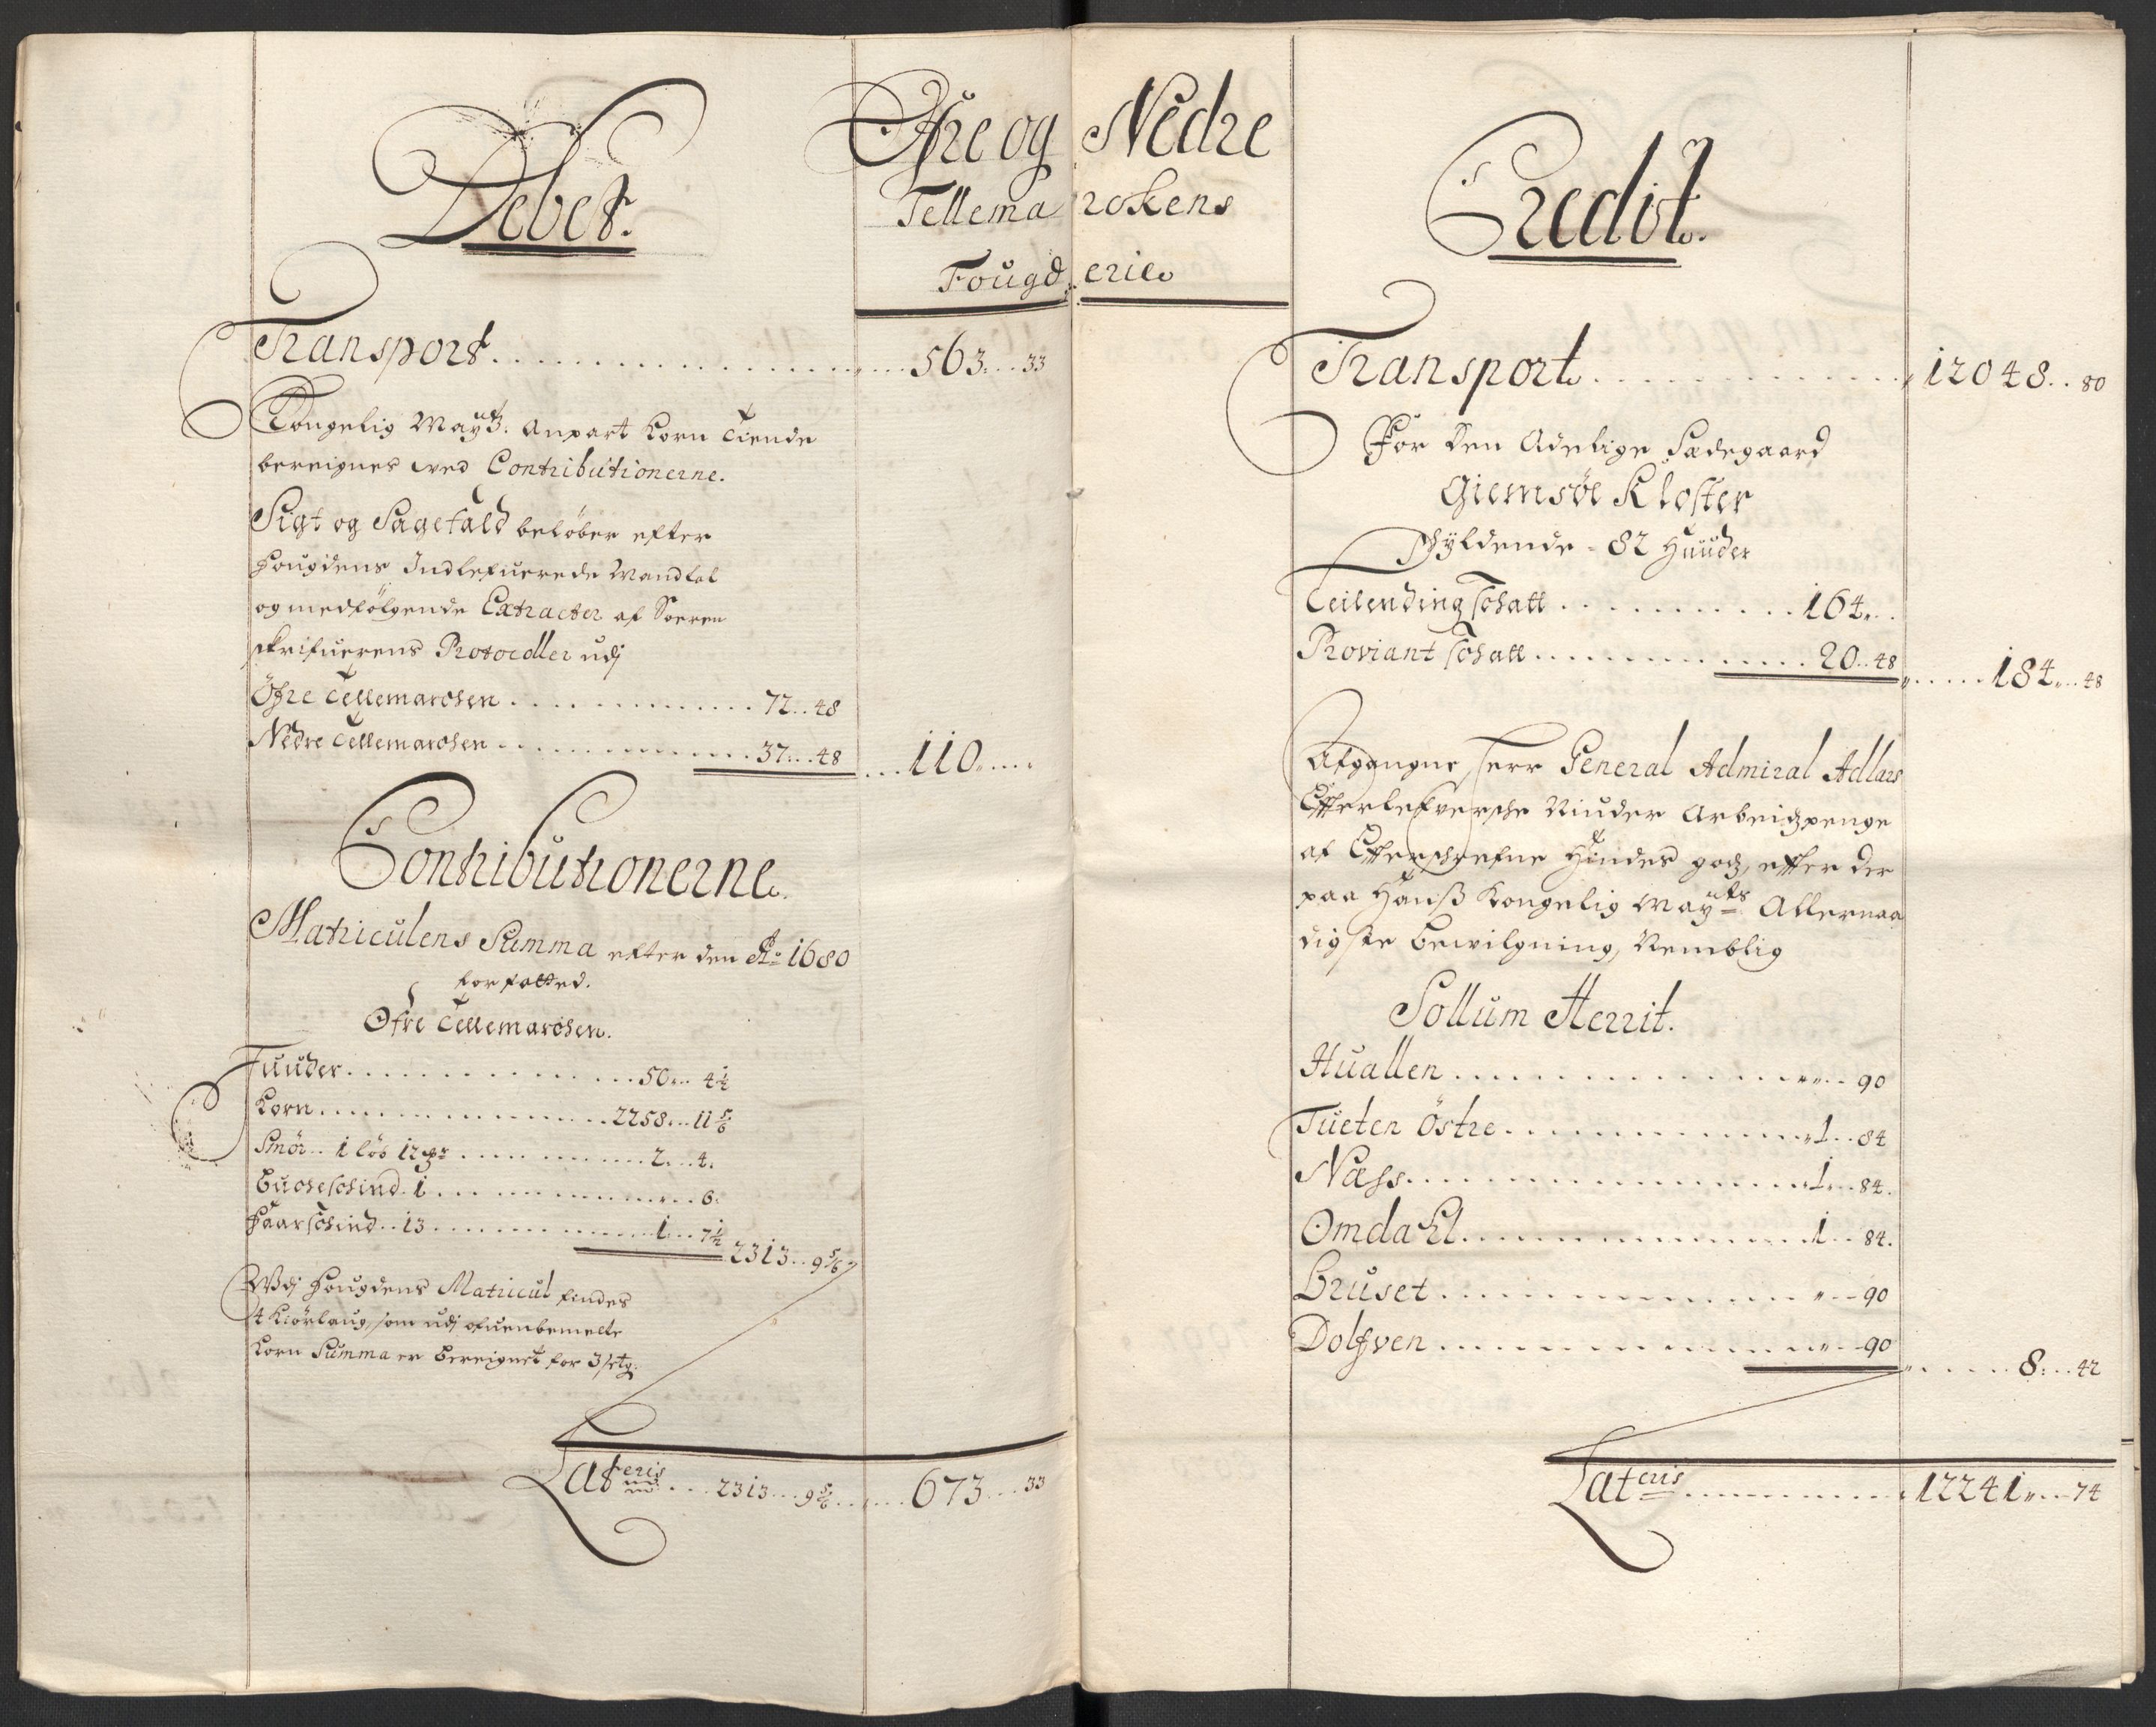 Debet.
Øfre og Nedre
Tellemarckens
Fougderie
Transport . . . 563 . . 33
Kongelig Mayts: Anpart Korn Tiende
bereignes ved Contributionerne.
Sigt og Sagefald beløber efter
Fougdens Indlefuerede Mandtal
og medfølgende Extracter af Soren
skrifuerens Protocoller udj
Øfre Tellemarchen . . . 72 . . 48
Nedre Tellemarchen . . . 37 . . 48 . . . 110
Contributionerne.
Matriculens Summa efter den Ao 1680
forfatted.
Øfre Tellemarchen.
Huuder . . . 50 . . 4 1/2
Korn . . . 2258 . . 11 5/6
Smør . . 1 løb 12 . . . 2 . . 4.
Buckeschind . 1 . . . 6.
Faarschind . . 13 . . . 1 . . 7 1/2
2313 . . 9 5/6
Udj Fougdens Matricul findes
4 Kiørlaug, som udj ofuenbemelte
Korn Summa er bereignet for 3 setg:
Lateris . . . 2313 . . 9 5/6 . . . 673 . . 33
Credit.
Transport . . . 12048 . . 80
For den Adelige Sædegaard
Giemsøe Kloster
Schyldende - 82 Huuder
Leilending Schatt . . . 164 . .
Proviant Schatt . . . 20 . . 48 . . . 184 . . 48
Afgangne Herr General Admiral Adlars
Efterlefversche Niuder Arbeidzpenge
af Efterschrefne Hindes godz, efter der
paa Hans Kongelig Mayts Allernaa
digste bewilgning, Nemblig
Sollum Herrit.
Huallen . . . 90
Tueten Østre . . . 1 . . 84
Næss . . . 1 . . 84.
Omdahl . . . 1 . . 84.
Bruset . . . 90
Dolfven . . . 90
8 . . 42
Lateris . . . 12241 . . 74